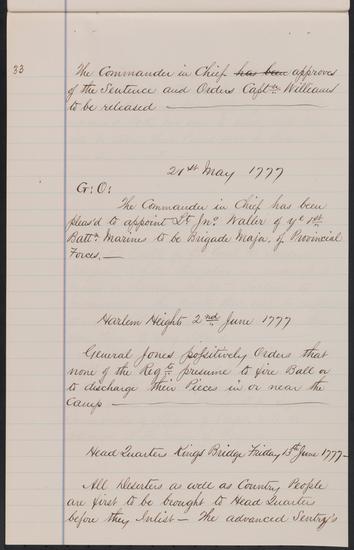 33
The Commander in Chief has been approves
of the Sentence and Orders Captn Williams
to be released —
21st May 1777
G: O:
The Commander in Chief has been
pleas'd to appoint Lt Jno. Waller of ye 1st
Battn. Marines to be Brigade Major, of Provincial
Forces. —
Harlem Heights 2nd June 1777
General Jones possitively Orders that
none of the Regts presume to fire Ball or
to discharge their Pieces in or near the
Camp —
Head Quarters Kings Bridge Friday 13th June 1777 —
All Deserters as well as Country People
are first to be brought to Head Quarters
before they Inlist — The advanced Sentry's